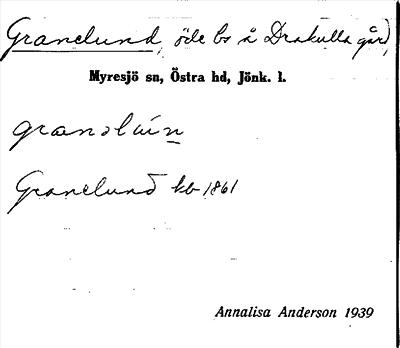 Granelund, öde bs å Drakulla gård,
Myresjö sn, Östra hd, Jönk. l.
granəlún
Granelund kb 1861
Annalisa Anderson 1939